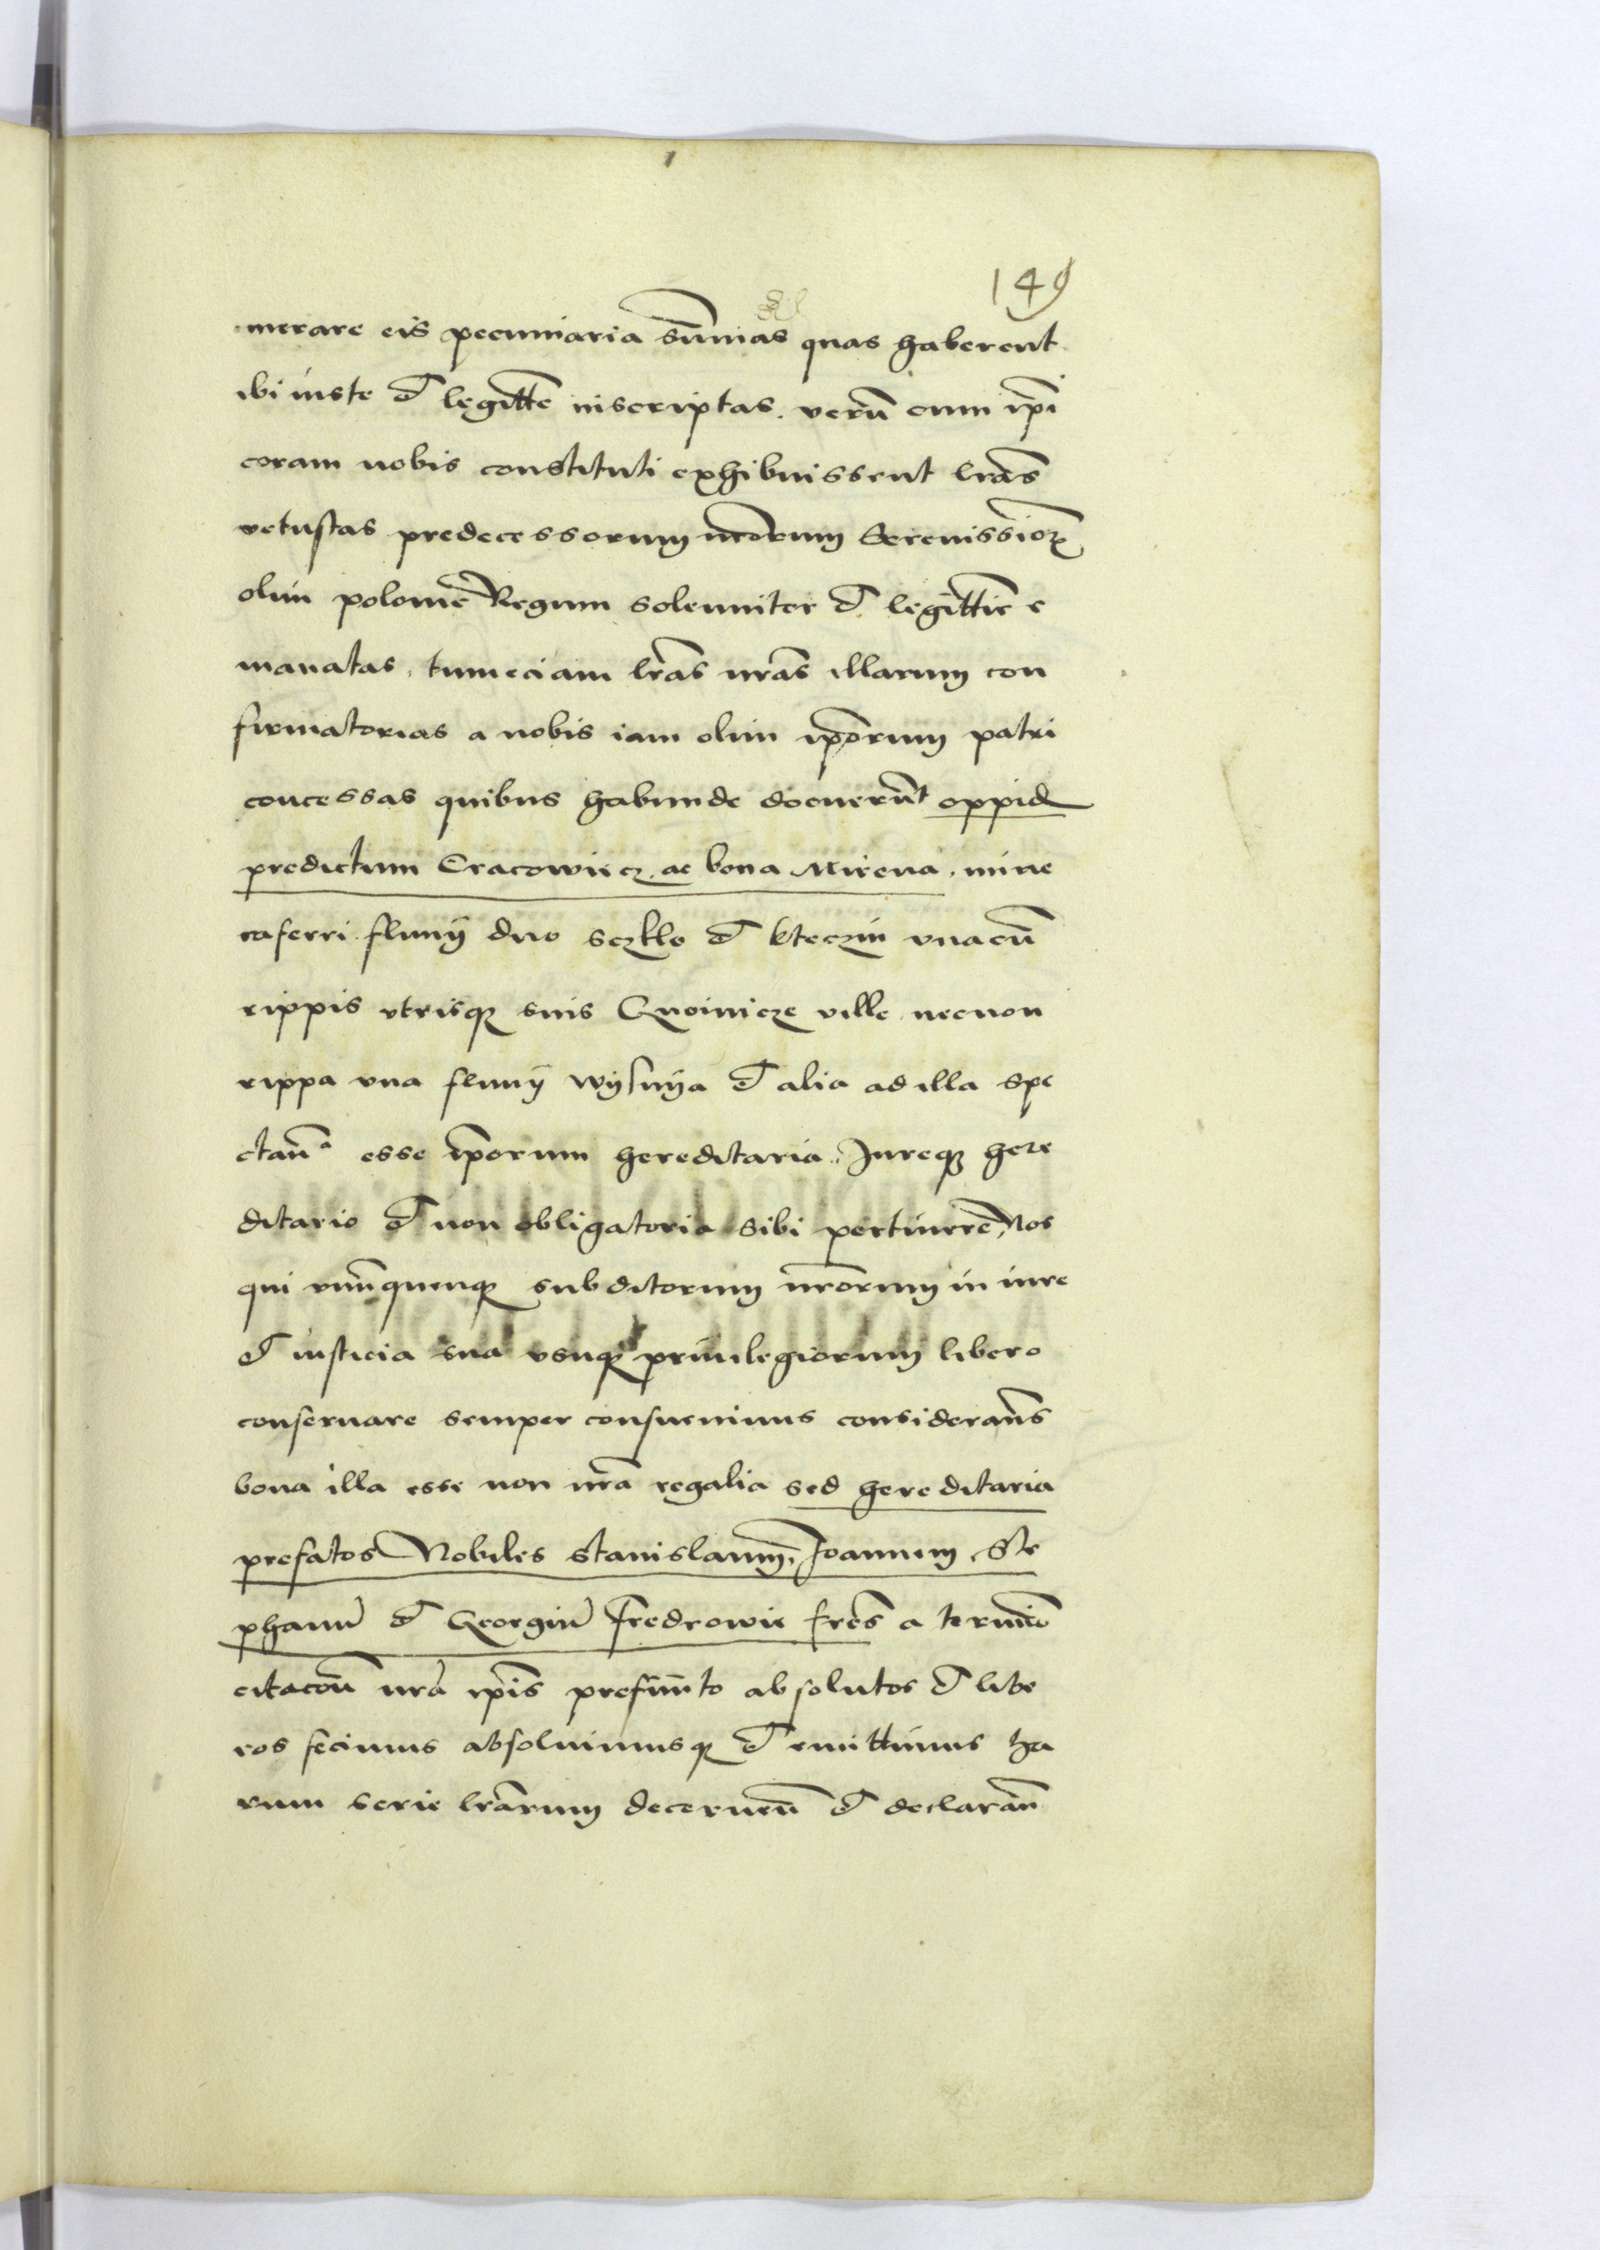 149
merare eis pecuniaria sum̄as quas haberent
ibi iuste et legitt̄e inscriptas . verū cum ip̄i
coram nobis constituti exhibuissent lr̄as
vetustas predecessorum nr̄orum Serenissīoꝝ
olim polonie Regum solenniter et legittīe e
manatas . tumeciam lr̄as nr̄as illarum con
firmatorias a nobis iam olim ip̄orum patri
concessas quibus habunde docuerūt oppid
predictum Cracowiecz . ac bona Mirena . mine
ra ferri . fluuij duo sczklo et kteczin vnacū
rippis vtrisqꝫ suis Gnoinicze ville necnon
rippa vna fluuij wysnya et alia ad illa spe
ctan̄ esse ip̄orum hereditaria . Jureqꝫ here
ditario et non obligatorio sibi pertinere Nos
qui vnūquenqꝫ subditorum nr̄orum in iure
et iusticia sua vsuqꝫ priuilegiorum libero
conseruare semper consueuimus consideran̄s
bona illa esse non nr̄a regalia sed hereditaria
prefatos Nobiles Stanislaum, Joannem, Ste
phanū et Georgiū Fredrowie fr̄es a termīo
citacōn̄ nr̄a ip̄is prefīnīto absolutos et libe
ros fecimus absoluimusqꝫ et emittimus ha
rum serie lr̄arum decernen̄ et declaran̄